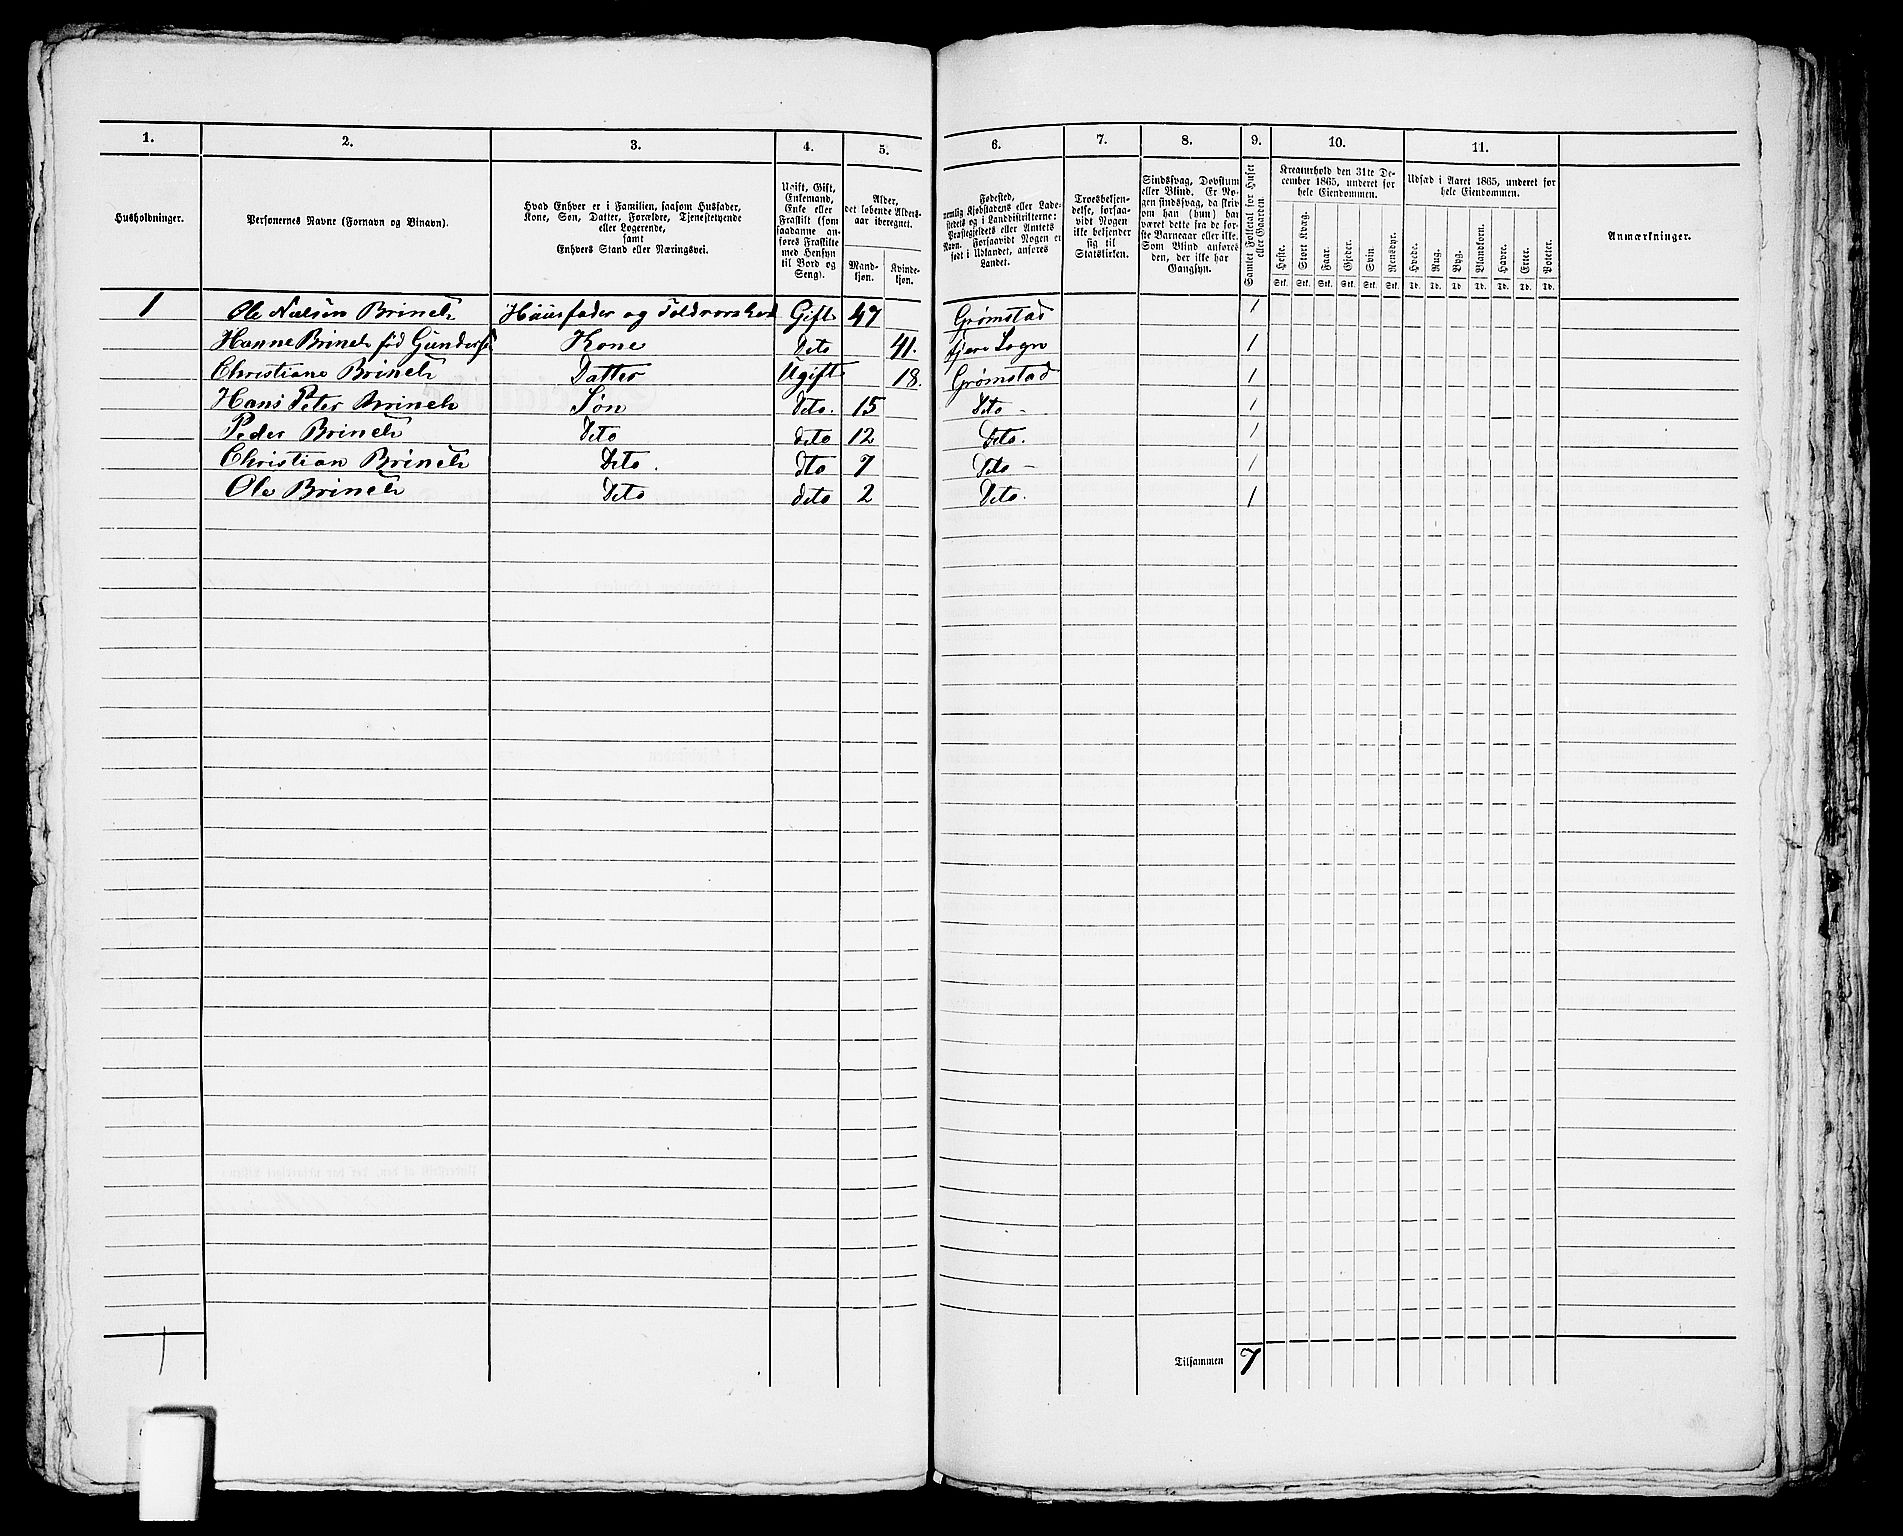 1. 2. 3. 4. 5. 6. 7. 8. 9. 10. 11.
Husholdninger.
Personernes Navne (Fornavn og Binavn).
Hvad Enhver er i Familien, saasom Husfader,
Kone, Søn, Datter, Forældre, Tjenestetyende
eller Logerende,
samt
Enhvers Stand eller Næringsvei.
Ugift, Gift,
Enkemand,
Enke eller
Fraskilt (som
saadanne an-
føres Fraskilte
med Hensyn
til Bord og
Seng).
Alder,
det løbende Alders-
aar iberegnet.
Mand-
kjøn.
Kvinde-
kjøn.
Fødested,
nemlig Kjøbstadens eller Lade-
stedets og i Landdistrikterne:
Præstegjeldets eller Amtets
Navn. Forsaavidt Nogen er
født i Udlandet, anføres
Landet.
Troesbekjen-
delse, forsaa-
vidt Nogen
ikke bekjender
sig til
Statskirken.
Sindssvag, Døvstum
eller Blind. Er No-
gen sindssvag, da skriv
om han (hun) har
været dette fra de før-
ste Barneaar eller ikke.
Som Blind anføres
den, der ikke har
Gangsyn.
Samlet Folketal for Huset
eller Gaarden.
Kreaturhold den 31te De-
cember 1865, underet for
hele Eiendommen.
Heste. Stort Kvæg. Faar. Gjeder. Svin. Rensdyr.
Stk. Stk. Stk. Stk. Stk. Stk.
Udsæd i Aaret 1865, underet for
hele Eiendommen.
Hvede. Rug. Byg. Blandkorn. Havre. Erter. Poteter.
Td. Td. Td. Td. Td. Td. Td.
Anmærkninger.
1 Ole Nielsen Brinch Huusfader og Gift 47 Grømstad 1
Hanne Brinch fød Kone Deto 41. Sogn 1
Christiane Brinch Datter Ugift 18. Grømstad 1
Hans Peter Brinch Søn deto. 15 Deto - 1
Peder Brinch Deto deto 12 Deto. 1
Christian Brinch Deto. dto 7 Deto - 1
Ole Brinch Deto deto 2 Deto. 1
1
Tilsammen 7